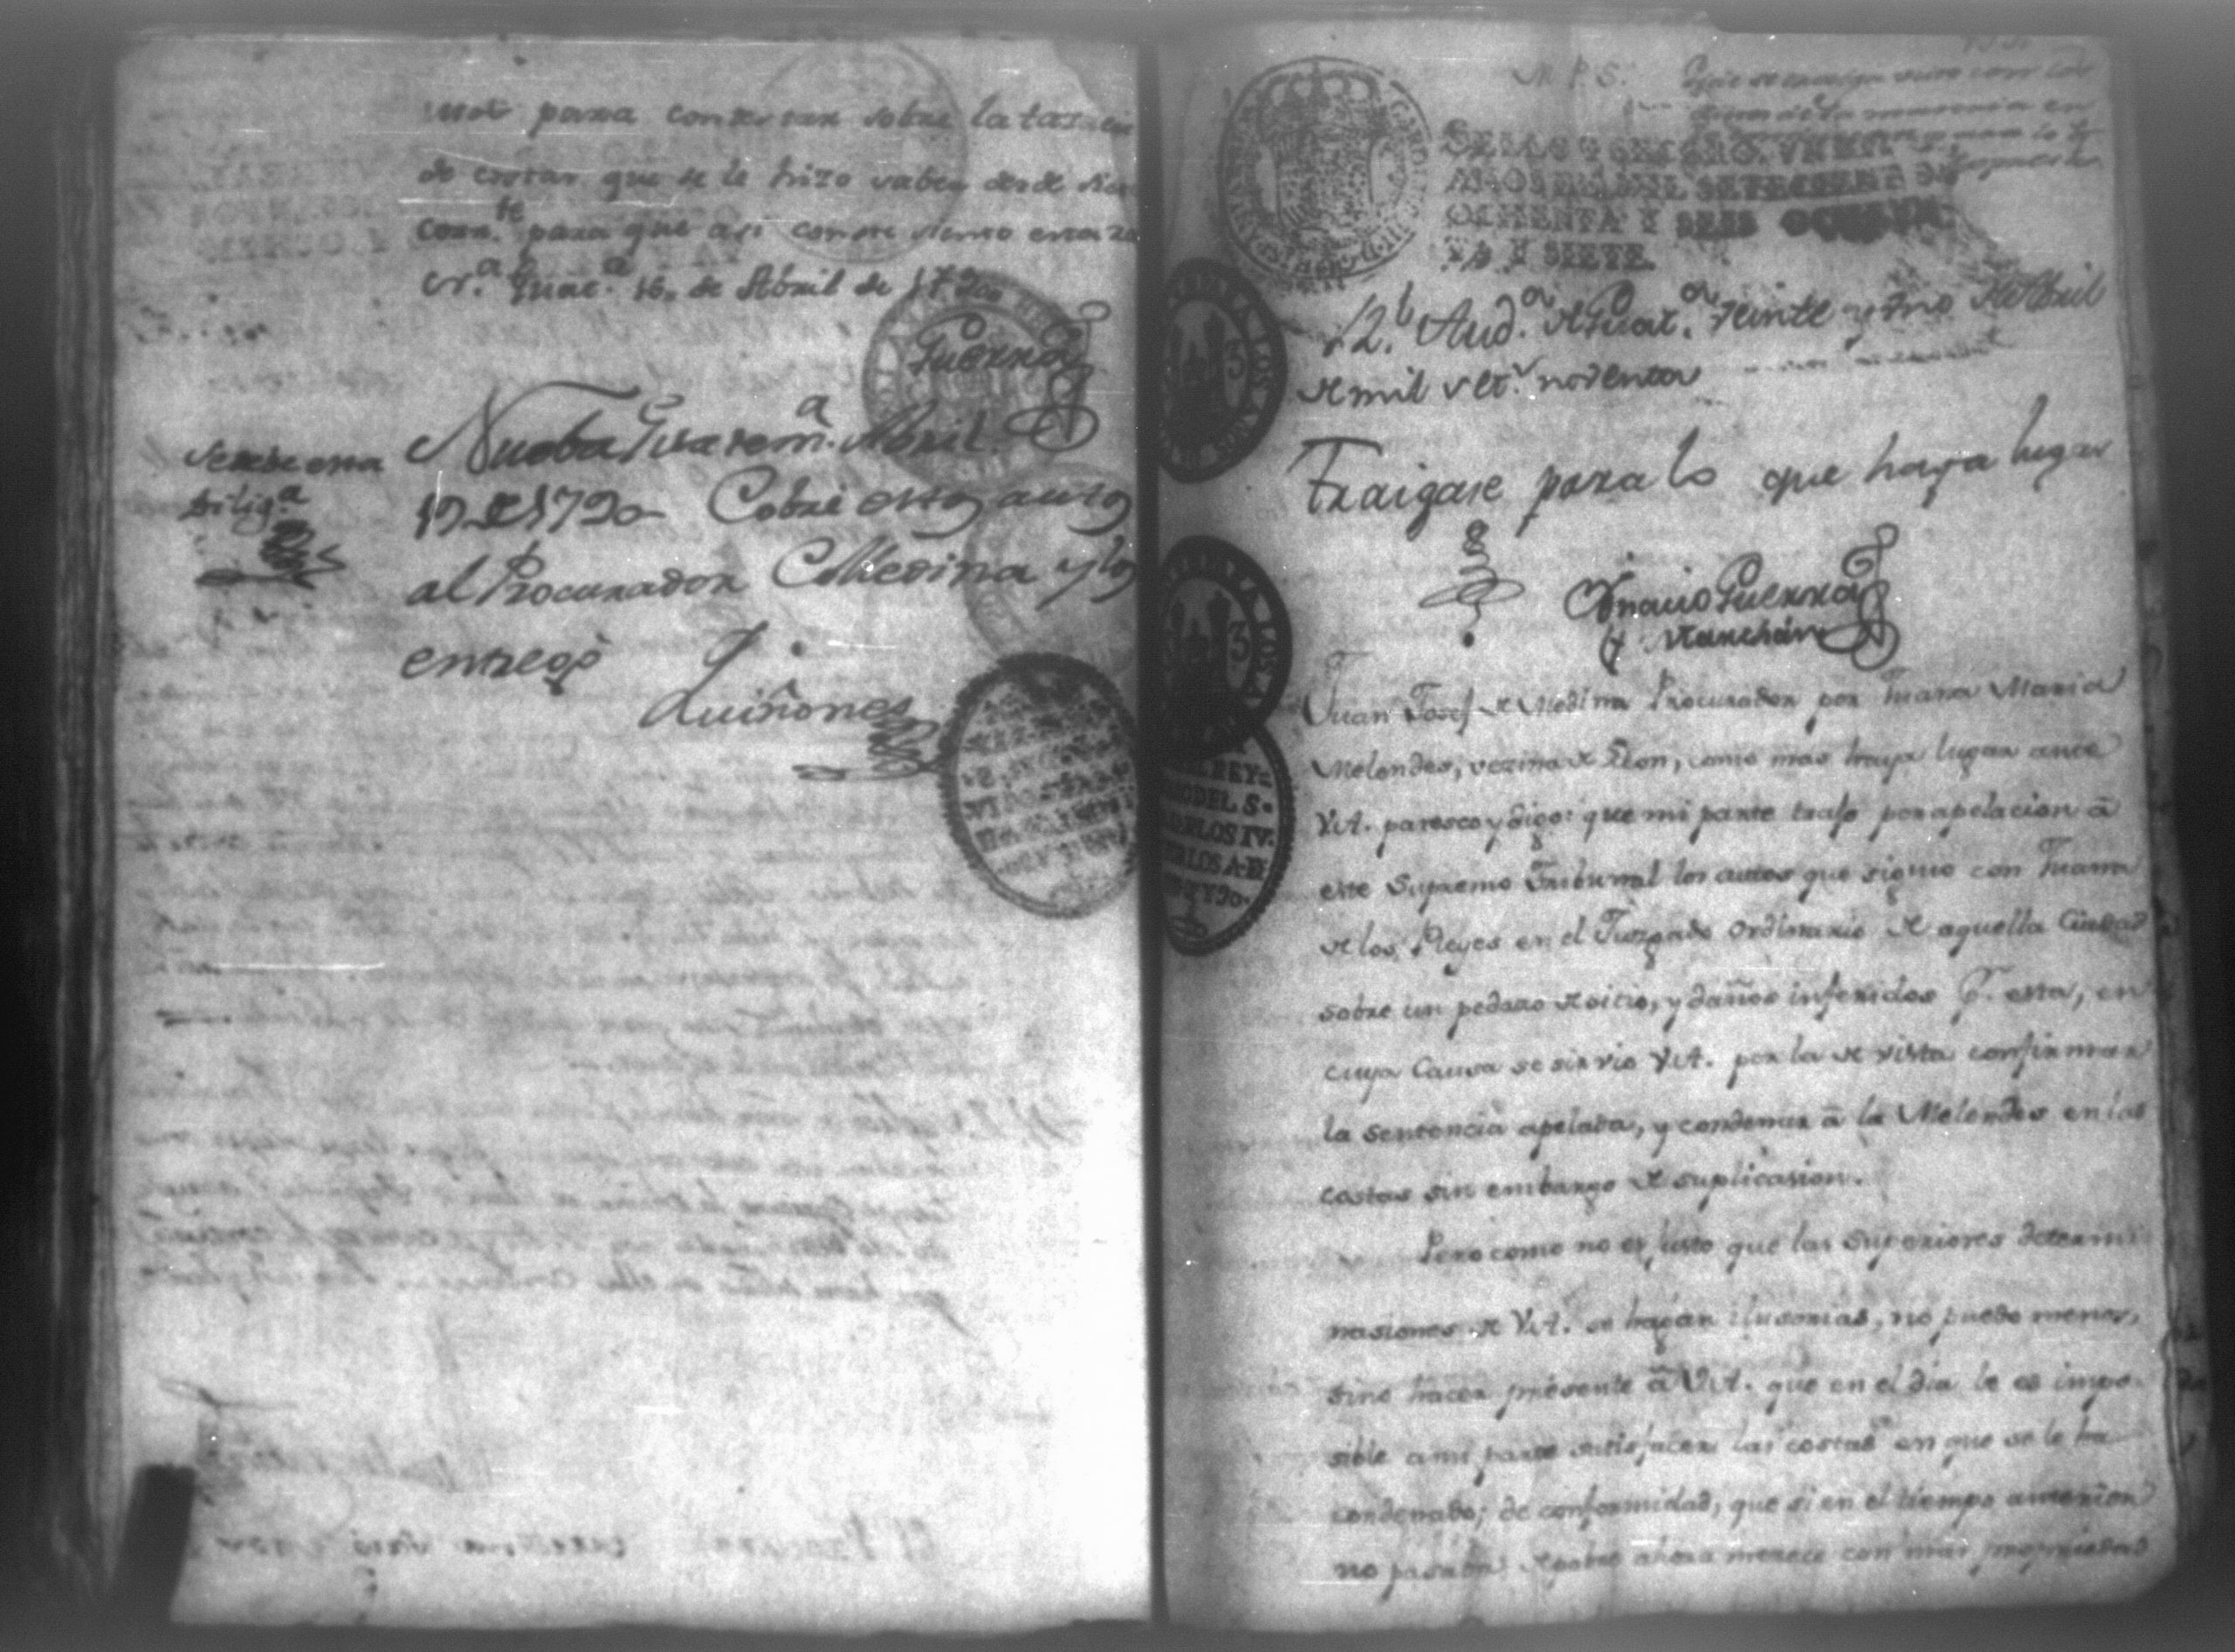 para contestar sobre la tasacion
de costas que se le hizo saber desde diez
corr.te para que asi conste siento esta ra
cr.a Guat.a 16. de Abril de 1790
Guerra
Nueba Guatem.a Abril
19 de 1790 Cobré estos autos
al Procurador Medina y los
entregó
Quiñones
Derechos una
Dilig.a
M. P. S.
SELLO TERCERO, VN REAL,
AÑOS DE MIL SETECIENTOS
OCHENTA Y SEIS OCHEN
TA Y SIETE.
R.l Aud.a de Guat.a veinte y uno de Abril
de mil set.s noventa
Traigase para lo que haya lugar
Ignacio Guerra
y Marchán
Juan Josef de Medina Procurador por Juana Maria
Melendes, vezina de Leon, como mas haya lugar ante
V.A. paresco y digo: que mi parte trajo por apelacion â
este Supremo Tribunal los autos que siguio con Juana
de los Reyes en el Juzgado ordinario de aquella Ciudad
sobre un pedazo de sitio, y daños inferidos p.r esta, en
cuya Causa se sirvio V.A. por la de vista confirmar
la sentencia apelada, y condenar â la Melendes en las
costas sin embargo de suplicasion.
Pero como no es justo que las Superiores determi
nasiones de V.A. se hagan ilusorias, no puedo menos,
sino hacer presente â V.A. que en el dia le es impo
sible a mi parte satisfacer las costas en que se le ha
condenado; de conformidad, que si en el tiempo anterior
no pasaba de pobre ahora merece con mas propriedad
3
3
REY
DEL S.
CARLOS IV.